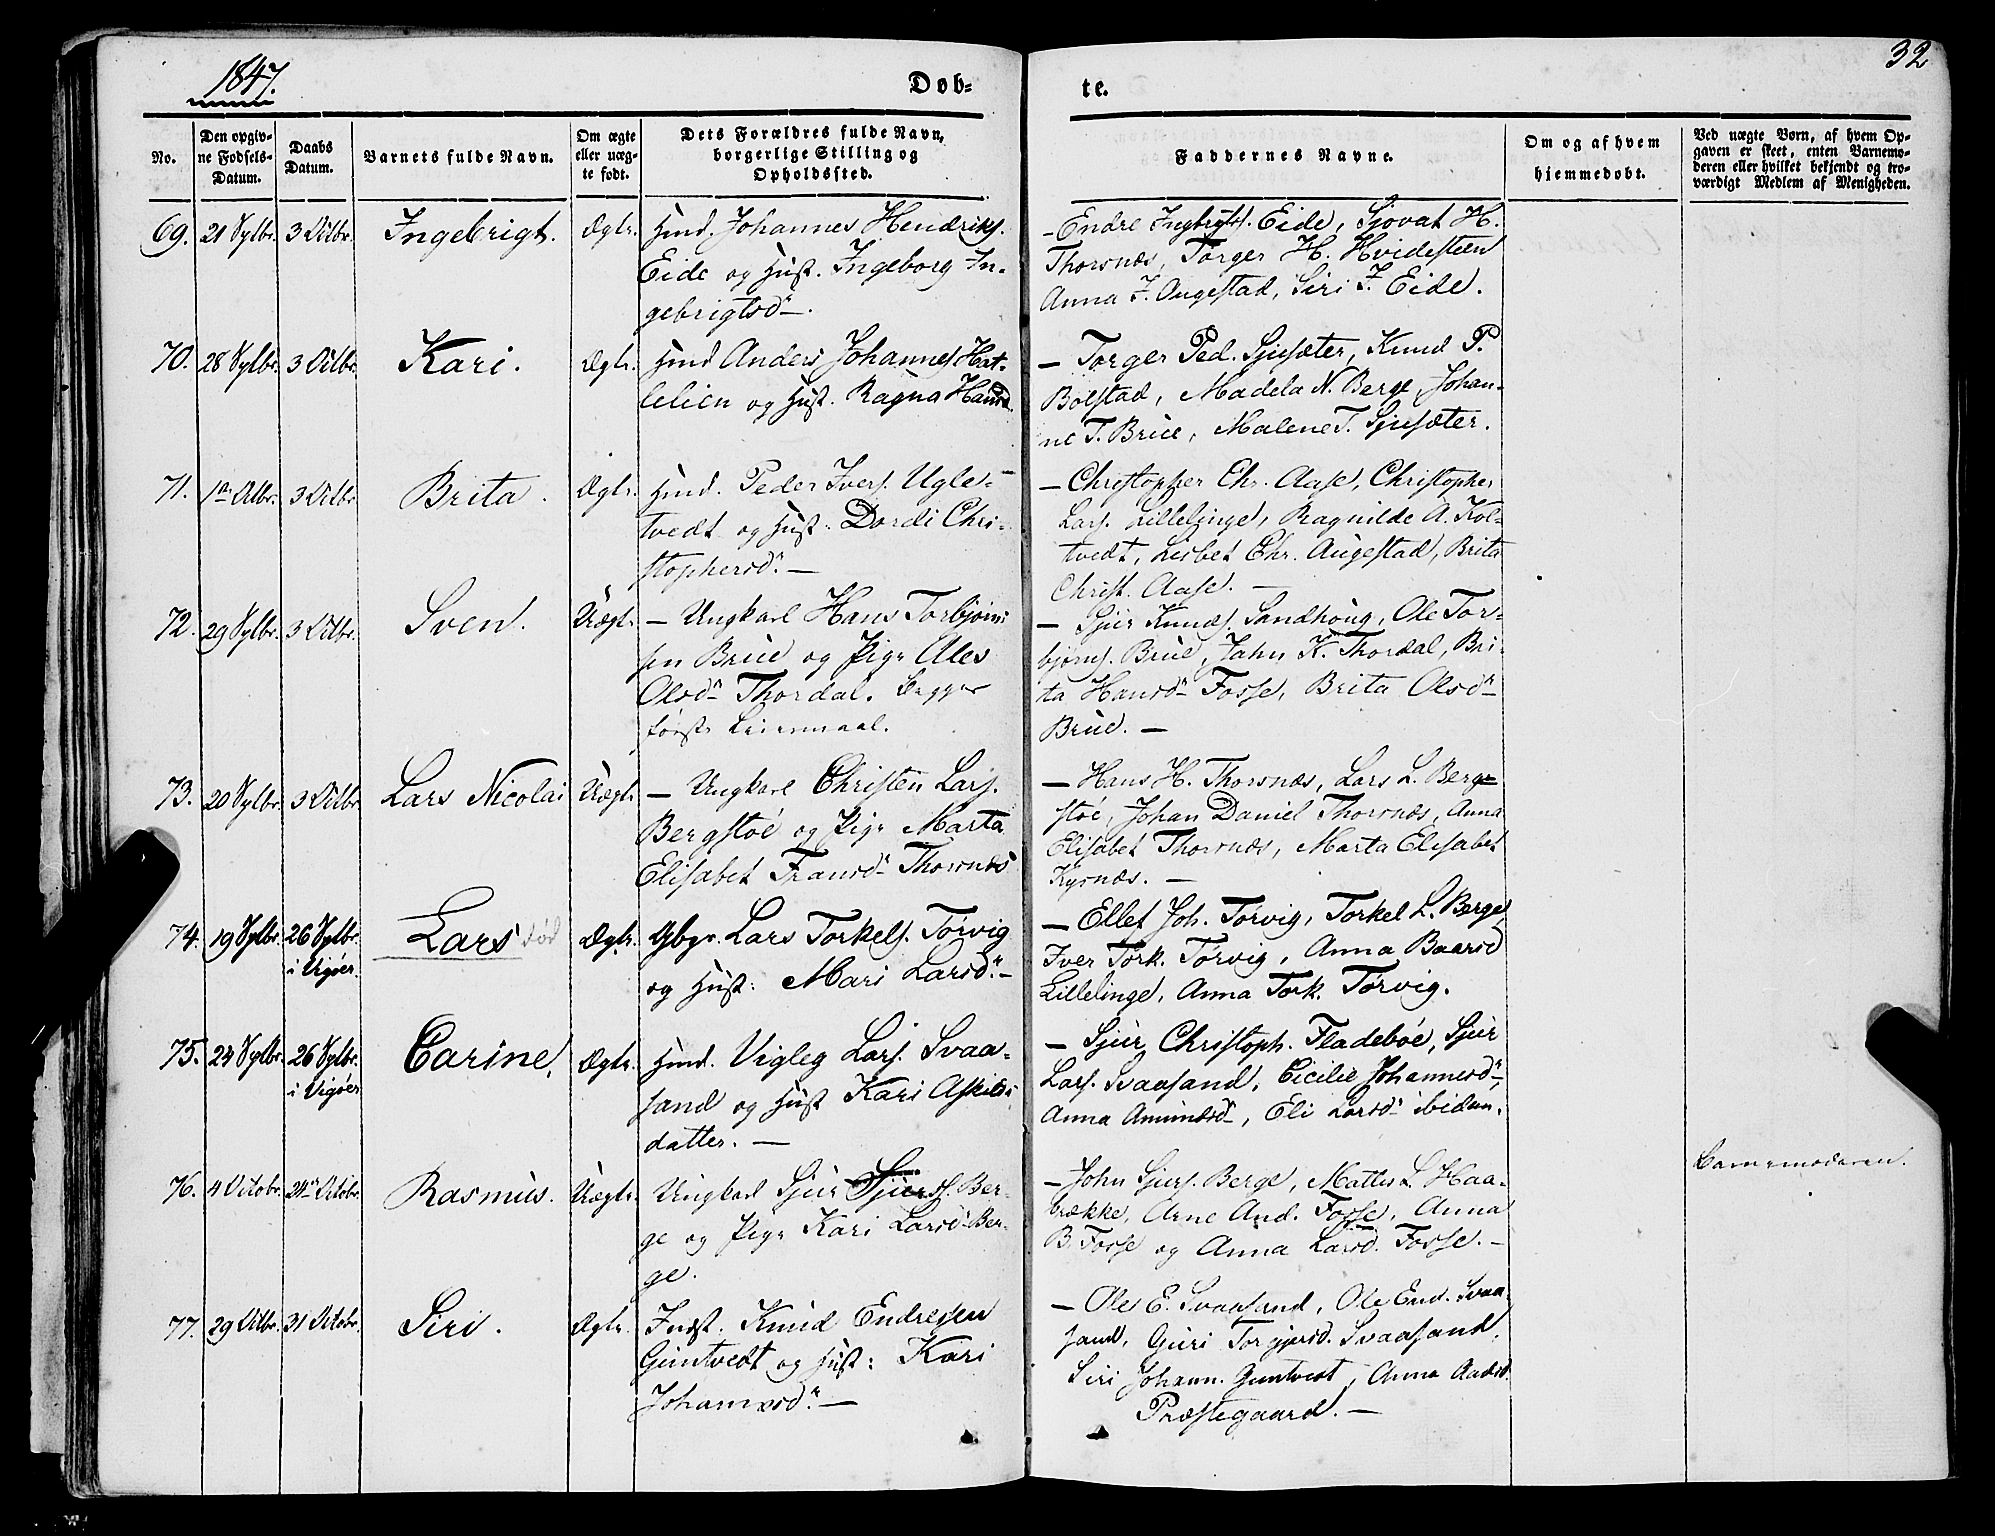 1847.
Døb-
te.
32
No.
Den opgiv-
ne Fødsels-
Datum.
Daabs
Datum.
Barnets fulde Navn.
Om ægte
eller uæg-
te født.
Dets Forældres fulde Navn,
borgerlige Stilling og
Opholdssted.
Faddernes Navne.
Om og af hvem
hjemmedøbt.
Ved uægte Børn, af hvem Op-
gaven er skeet, enten Barnemo-
deren eller hvilket bekjendt og tro-
værdigt Medlem af Menigheden.
69. 21 Sptbr. 3 Octbr. Ingebrigt. Ægte. Huusm. Johannes Hendriks.
Eide og Hust. Ingeborg In-
gebrigtsdr.
- Endre Ingbrigts. Eide, Sjovat H.
Thorsnæs, Torger H. Hvidesteen
Anna J. Augestad, Siri J. Eide.
70. 28 Sptbr. 3 Octbr. Kari. Ægte. Huusm Anders Johannes. Hat-
lelien og Hust. Ragna Hansd.
- Torger Ped. Sjusæter, Knud P.
Bolstad, Madela N. Berge, Johan-
ne T. Brue, Malene T. Sjusæter.
71. 1ste Octbr. 3 Octbr. Brita. Ægte. Huusm. Peder Ivers. Ugle-
tvedt og Hust. Dordi Chri-
stophersdr. -
- Christopher Chr. Aase, Christopher
Lars. Lillelinge, Ragnilde A. Kol-
tvedt, Lisbet Chr. Augestad, Brita
Christ. Aase. -
72. 29 Sptbr. 3 Octbr. Sven. Uægte - Ungkarl Hans Torbjørn-
sen Brue og Pige Ales
Olsdr Thordal. Begges
første Leiermaal.
- Sjur Knuds. Sandhoug, Ole Tor-
bjørns. Brue, Jahn K. Thordal, Bri-
ta Hansdr Fosse, Brita Olsdr
Brue. -
73. 20 Sptbr. 3 Octbr Lars Nicolai Uægte - Ungkarl Christen Lars.
Bergstøe og Pige Marta
Elisabet Fransdr Thorsnæs
- Hans H. Thorsnæs, Lars L. Berg-
støe, Johan Daniel Thorsnæs, Anna
Elisabet Thorsnæs, Marta Elisabet
Kyrnæs. -
74. 19 Sptbr. 26 Sptbr. i Vigøer Lars død Ægte. Gbr. Lars Torkels. Tørvig
og Hust: Mari Larsdr. -
- Ellef Joh. Tørvig, Torkel L. Berge
Iver Tork. Tørvig, Anna Baarsd
Lillelinge, Anna Tork. Tørvig.
75. 24 Sptbr. 26 Sptbr. i Vigøer Carine, Ægte. Huusm. Vigleg Lars. Svaa-
sand og Hust Kari Askilds-
datter. -
- Sjur Christoph. Fladebøe, Sjur
Lars. Svaasand, Cicilie Johannesdr,
Anna Amundsdr, Eli Larsdr ibidem.
76. 4 Octobr. 24de Octobr. Rasmus. Uægte. Ungkarl Sjur Sjurs. Ber-
ge og Pige Kari Larsdr Ber-
ge.
- John Sjurs. Berge, Mattis L. Haa-
brække, Arne And. Fosse, Anna
B. Fosse og Anna Larsd. Fosse. -
Barnemoderen.
77. 29 Octbr. 31 Octobr. Siri. Ægte. Inderst. Knud Endresen
Guntvedt og Hust: Kari
Johannesdr. -
- Ole E. Svaasand, Ole End. Svaa-
sand, Guri Torgjersd. Svaasand,
Siri Johann. Guntvedt, Anna Aadsd
Præstegaard. -